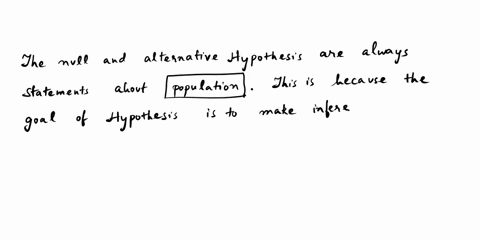 The null and alternative Hypothesis are always
statements about population. This is because the
goal of Hypothesis is to make infere